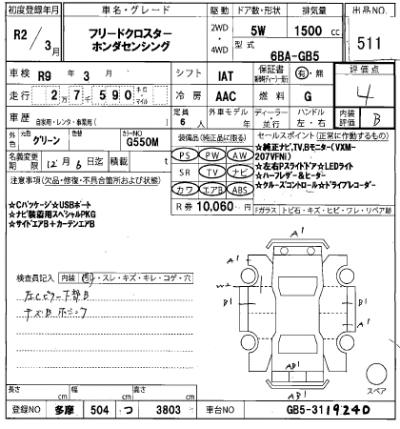 初度登録年月 車名・グレード 駆動 ドア数・形状 排気量 出品NO.
R2/3月 フリードクロスター ホンダセンシング 2WD・4WD 5W 1500cc 511
型式 6BA-GB5
車検 R9年3月 シフト IAT 保証書 有・無 評価点
走行 27,590 km・マイル 冷房 AAC 燃料 G 4
車歴 自家用・レンタ・事業用( ) 定員 6人 外車モデル 年 ディーラー・並行 ハンドル 左・右 内装評価 B
外色 グリーン カラーNO G550M 装備品(純正品に限る) セールスポイント(正常に作動するもの)
名義変更期限 12月6日迄 積載 t
PS PW AW
SR TV ナビ
カワ エアB ABS
R券 10,060円
★純正ナビ,TV,Bモニター(VXM-
207VFNi)
★左右Pスライドドア☆LEDライト
★ハーフレザー&ヒーター
★クルーズコントロール★ドライブレコーダー
注意事項(欠品・修復・不具合箇所および状態)
★Cパッケージ★USBポート
★ナビ装着用スペシャルPKG
★サイドエアB+カーテンエアB
Fガラス トビ石・キズ・ヒビ・ワレ・リペア跡
検査員記入 内装 スレ・キズ・キレ・コゲ・穴
キズB
A1
A1
W2
B1
B1
A1
AB1
AB1
スペア
長さ cm 幅 cm 高さ cm
登録NO 多摩 504 つ 3803 車台NO GB5-3119240